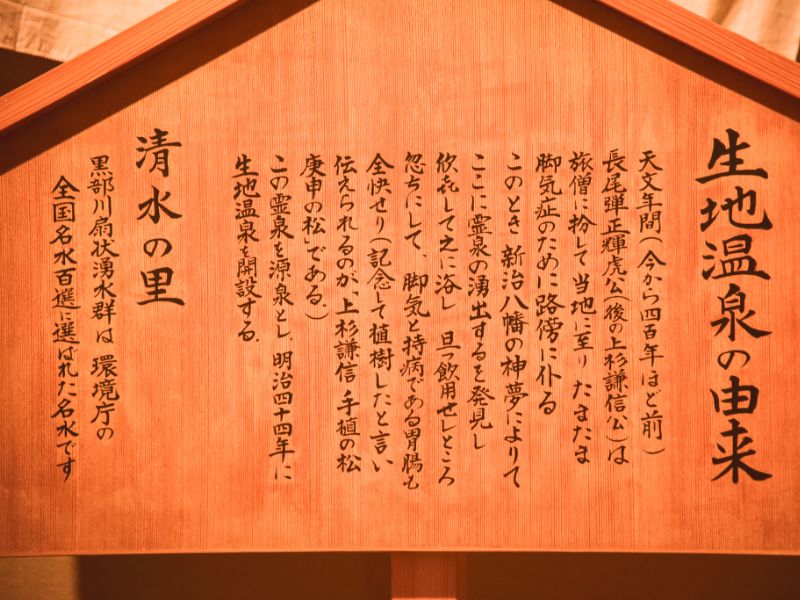 生地温泉の由来
天文年間(今から四百年ほど前)
長尾弾正輝虎公(後の上杉謙信公)は
旅僧に扮して当地に至り たまたま
脚気症のために路傍に仆る
このとき 新治八幡の神夢によりて
ここに霊泉の湧出するを発見し
欣喜して之に浴し 旦つ飲用せしところ
忽ちにして、脚気と持病である胃腸も
全快せり(記念して植樹したと言い
伝えられるのが、「上杉謙信手植の松
庚申の松」である。)
この霊泉を源泉とし、明治四十四年に
生地温泉を開設する。
清水の里
黒部川扇状湧水群は 環境庁の
全国名水百選に選ばれた名水です